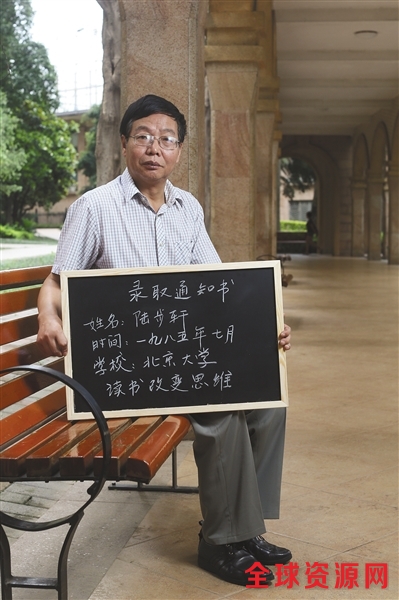 录取通知书
姓名：陆步轩
时间：一九八五年七月
学校：北京大学
读书改变思维
全球资源网